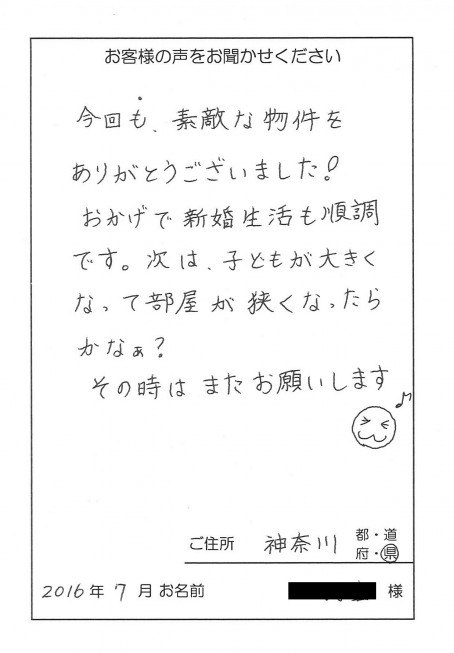 お客様の声をお聞かせください
今回も、素敵な物件を
ありがとうございました!
おかげで新婚生活も順調
です。次は、子どもが大きく
なって部屋が狭くなったら
かなぁ?
その時はまたお願いします
♪
ご住所 神奈川 都・道
府・県
2016年 7月 お名前 様